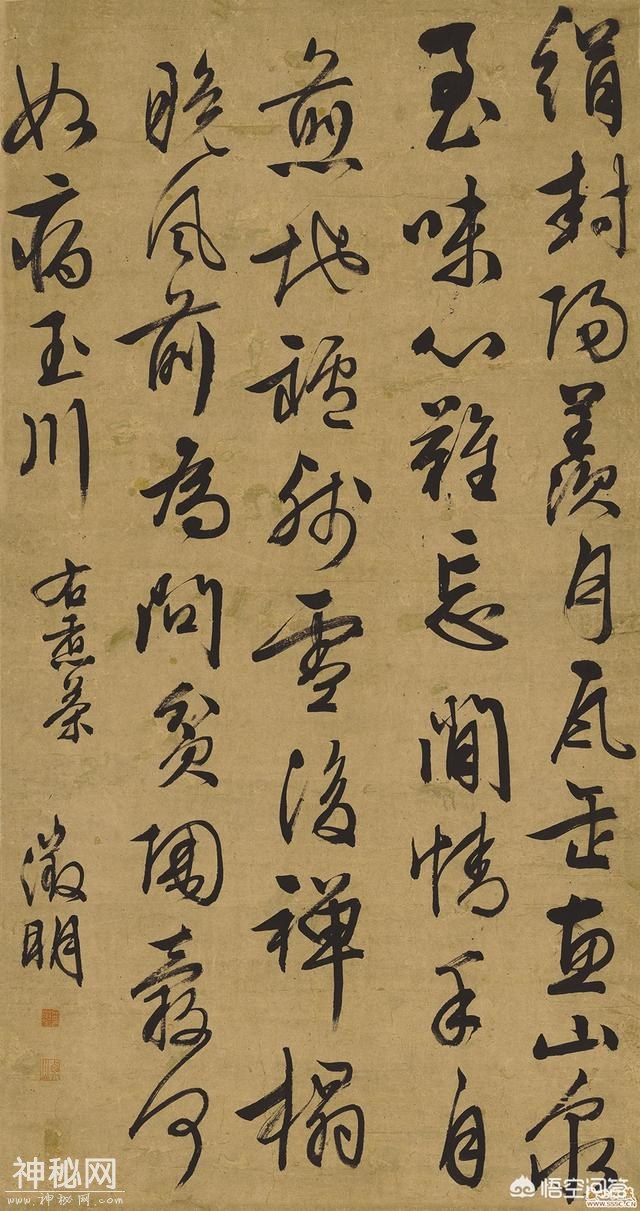 絹封陽羨月瓦缶惠山泉
至味心難忘閒情手自
煎地罏殘雪後禪榻
晚風前為問貧陶穀何
如病玉川
右煮茶
徵明
神秘网
www.神秘网.com
悟空问答
WWW.SSSC.CN